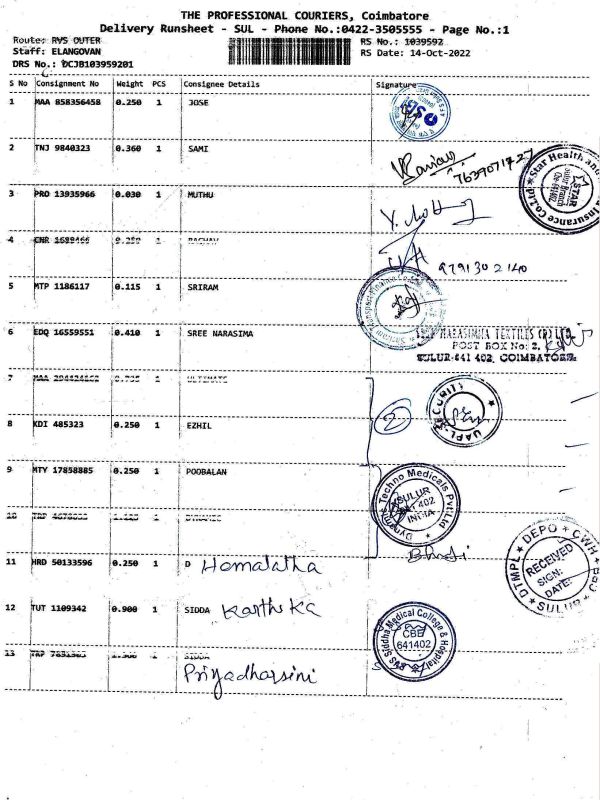 THE PROFESSIONAL COURIERS, Coimbatore
Delivery Runsheet - SUL - Phone No.:0422-3505555 - Page No.:1
Route: RVS OUTER
RS No.: 1039592
Staff: ELANGOVAN
RS Date: 14-Oct-2022
DRS No.: DCJB103959201
S No Consignment No Weight PCS Consignee Details Signature
1 MAA 858356458 0.250 1 JOSE
2 TNJ 9840323 0.360 1 SAMI
7639071727
Star Health and Insurance Co.Ltd
STAR
3 PRO 13935966 0.030 1 MUTHU
4 CNR 1689466 0.250 1 RAGHAV
9791302140
5 MTP 1186117 0.115 1 SRIRAM
6 EDQ 16559551 0.410 1 SREE NARASIMA
NARASIMHA TEXTILES (P) LTD.
POST BOX No: 2,
SULUR-641 402, COIMBATORE
7 1 ULTIMATE
2
UAPL SECURITY
8 KDI 485323 0.250 1 EZHIL
9 MTY 17858885 0.250 1 POOBALAN
Techno Medicals Pvt Ltd
SULUR
402
INDIA
10 1
11 HRD 50133596 0.250 1 D Hemalatha
DTMPL DEPO CWH
RECEIVED
SIGN:
DATE:
SULUR
12 TUT 1109342 0.900 1 SIDDA Karthika
RVS Siddha Medical College & Hospital
CBE
641402
13 1 SIDDA
Priyadharsini